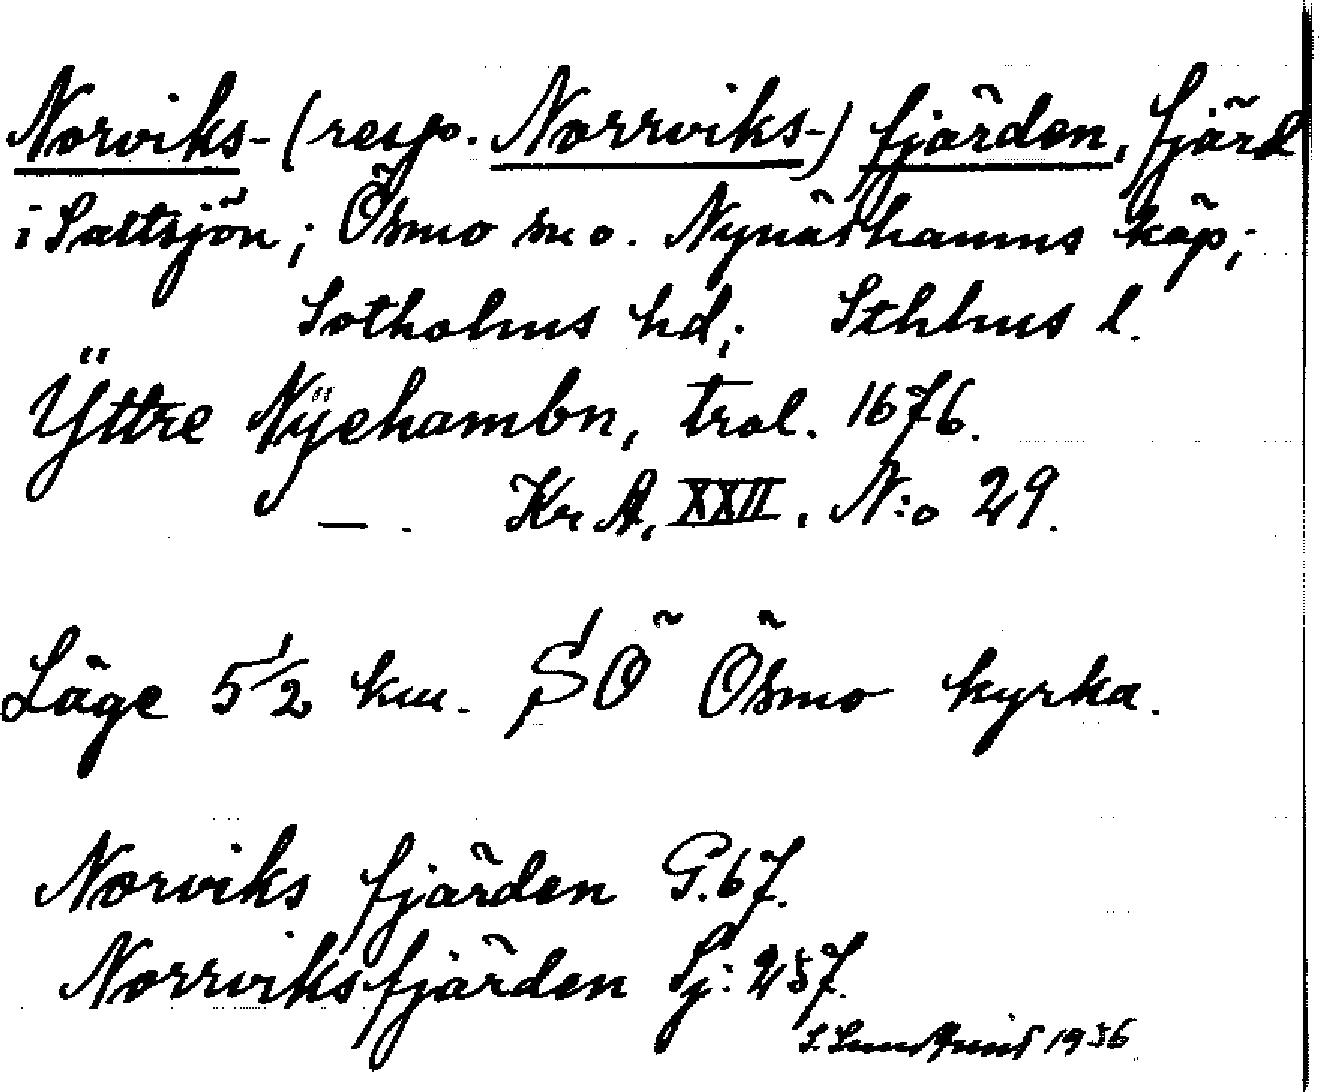 Norviks- (resp. Norrviks-) fjärden, fjärd
i Saltsjön; Ösmo sn o. Nynäshamns köp;
Sotholms hd; Sthlms l.
Ÿttre Nÿehambn, trol. 1676.
— . Kr.A. XXII. N:o 29.
Läge 5 1/2 km. SÖ Ösmo kyrka.
Norviks fjärden G. 67.
Norrviksfjärden Sj: 257.
1936